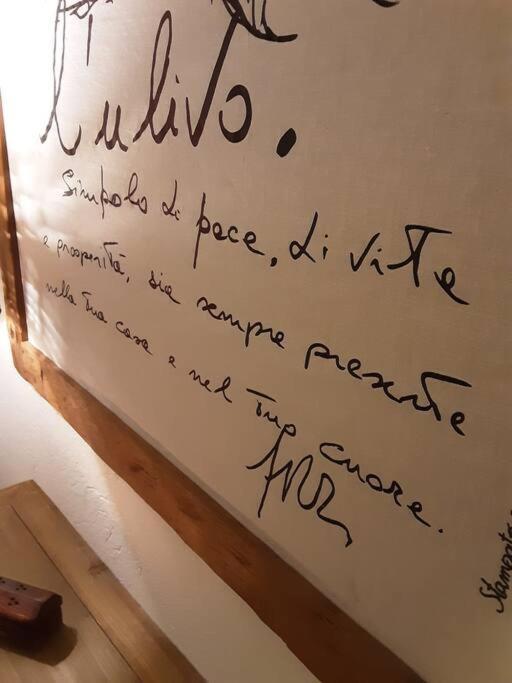 L'ulivo.
Simbolo di pace, di vita
e prosperità, sia sempre presente
nella tua casa e nel tuo cuore.